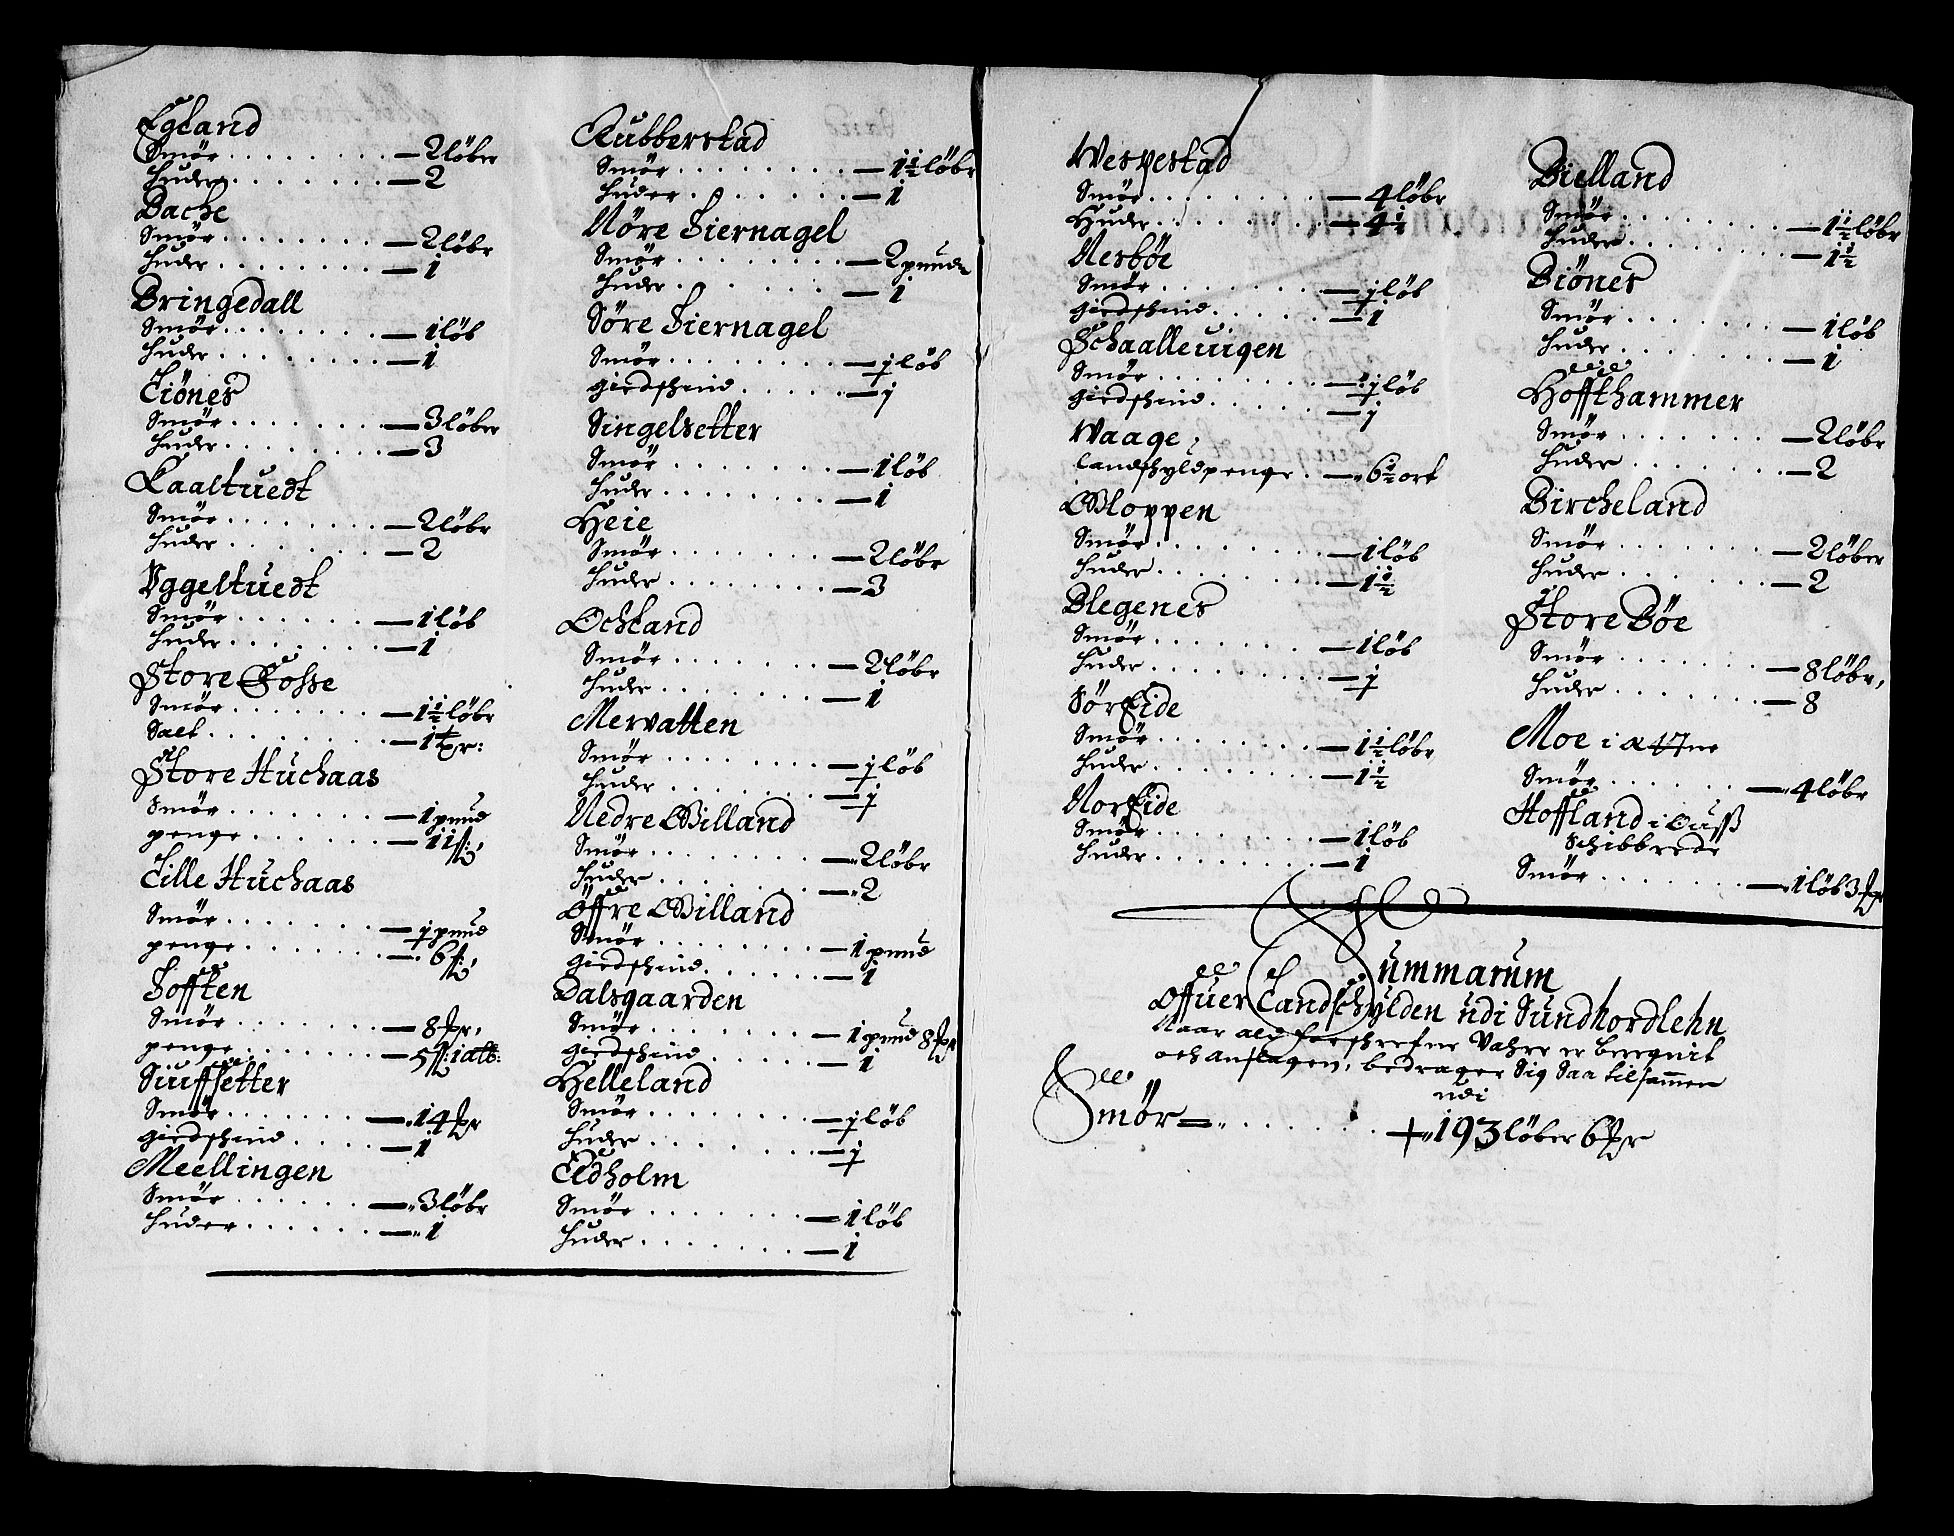 Egeland
Smör . . . . . . . — 2 löber
Huder . . . . . . . — 2
Bache
Smör . . . . . . . — 2 löbr
Huder . . . . . . . — 1
Bringedall
Smör . . . . . . . — 1 löb
Huder . . . . . . . — 1
Tiönes
Smör . . . . . . . — 3 löber
Huder . . . . . . . — 3
Kaaltuedt
Smör . . . . . . . — 2 löbr
Huder . . . . . . . — 2
Yggeltuedt
Smör . . . . . . . — 1 löb
Huder . . . . . . . — 1
Store
Smör . . . . . . . — 1½ löbr
Salt . . . . . . . — 1 tr:
Store Huchaas
Smör . . . . . . . — 1 pund
penge . . . . . . . — 11 ß,
Lille Huchaas
Smör . . . . . . . — ½ pund
penge . . . . . . . — 6 ß,
Tofften
Smör . . . . . . . — 8 pr,
penge . . . . . . . — 5 ß: 1 alb:
Siuffsetter
Smör . . . . . . . — 14 pr
giedschind . . . . — 1
Meellingen
Smör . . . . . . . — 3 löbr
Huder . . . . . . . — 1
Rubberstad
Smör . . . . . . . — 1½ löbr
Huder . . . . . . . — 1
Nöre Tiernagel
Smör . . . . . . . — 2 pund
Huder . . . . . . . — 1
Söre Tiernagel
Smör . . . . . . . — ½ löb
giedschind . . . . — ½
Singelsetter
Smör . . . . . . . — 1 löb
Huder . . . . . . . — 1
Heie
Smör . . . . . . . — 2 löbr
Huder . . . . . . . — 3
Ochland
Smör . . . . . . . — 2 löbr
Huder . . . . . . . — 1
Mervatten
Smör . . . . . . . — ½ löb
Huder . . . . . . . — ½
Nedre Billand
Smör . . . . . . . — 2 löbr
Huder . . . . . . . — 2
Öffre Billand
Smör . . . . . . . — 1 pund
giedschind . . . . — 1
Dalsgaarden
Smör . . . . . . . — 1 pund 8 pr
giedschind . . . . — 1
Helleland
Smör . . . . . . . — ½ löb
Huder . . . . . . . — ½
Eldholm
Smör . . . . . . . — 1 löb
Huder . . . . . . . — 1
Wespestad
Smör . . . . . . . — 4 löbr
Huder . . . . . . . — 4½
Nesböe
Smör . . . . . . . — ½ löb
giedschind . . . . — 1
Schaalleuigen
Smör . . . . . . . — ½ löb
giedschind . . . . — ½
Waage,
Landschyldpenge . — 6½ ort
Gloppen
Smör . . . . . . . — 1 löb
Huder . . . . . . . — 1½
Blegenes
Smör . . . . . . . — 1 löb
Huder . . . . . . . — ½
Sör Eide
Smör . . . . . . . — 1½ löbr
Huder . . . . . . . — 1½
Nor Eide
Smör . . . . . . . — 1 löb
Huder . . . . . . . — 1
Bielland
Smör . . . . . . . — 1½ löbr
Huder . . . . . . . — 1½
Biönes
Smör . . . . . . . — 1 löb
Huder . . . . . . . — 1
Hoffthammer
Smör . . . . . . . — 2 löbr
Huder . . . . . . . — 2
Bircheland
Smör . . . . . . . — 2 löber
Huder . . . . . . . — 2
Store Böe
Smör . . . . . . . — 8 löbr,
Huder . . . . . . . — 8
Moe i
Smör . . . . . . . — 4 löbr
Hoffland i
Schibbrede
Smör . . . . . . . — 1 löb 3 pr
Summarum
Offuer Landschylden udi Sundhordlehn
Naar ald forschrefne Vahre er beregnit
och anslagen, bedrager Sig Saa tilsammen
udi
Smör . . . . . . . 193 löber 6 pr